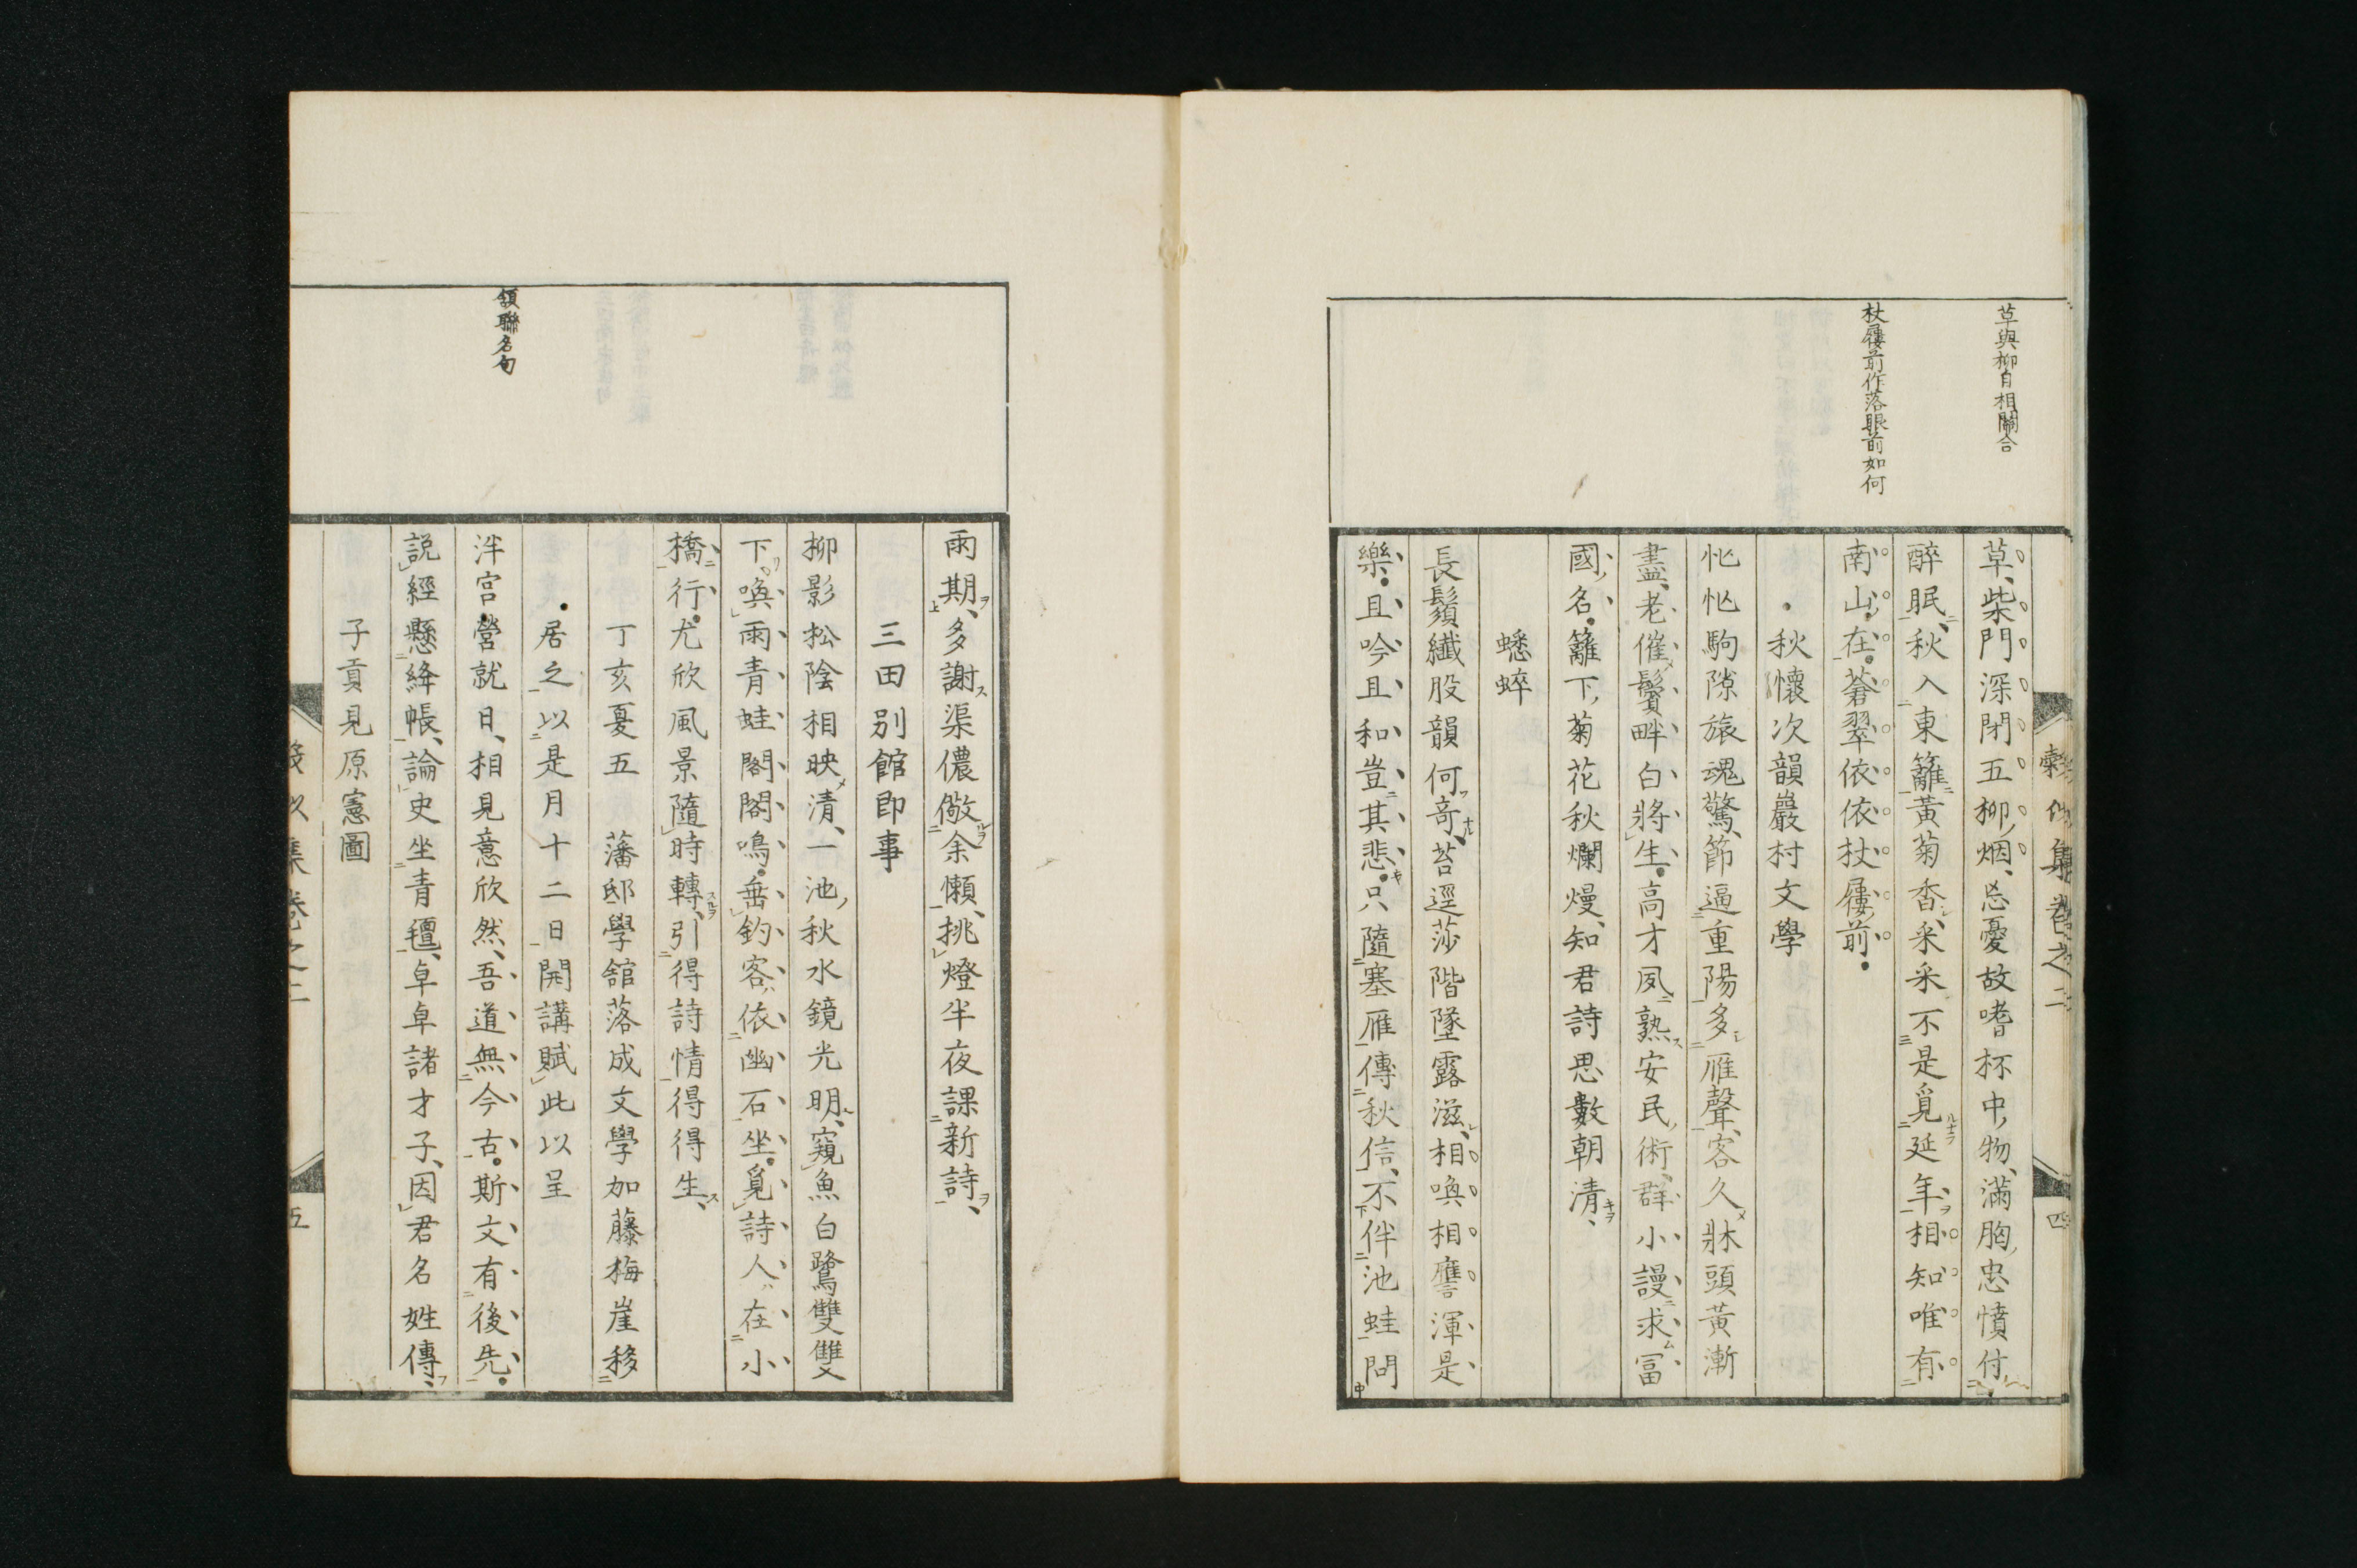 草與柳自相關合
杖屨前作落眼前如何
草柴門深閉五柳烟忘憂故嗜杯中物滿胸忠憤付
醉眠秋入東籬黃菊香采采不是覓延年相知唯有
南山在蒼翠依依杖屨前
秋懷次韻巖村文學
忙忙駒隙旅魂驚節逼重陽多雁聲客久牀頭黃漸
盡老催鬢畔白將生高才夙熟安民術群小謾求冨
國名籬下菊花秋爛熳知君詩思數朝清
蟋蟀
長鬚纖股韻何奇苔逕莎階墜露滋相喚相譍渾是
樂且吟且和豈其悲只隨塞雁傳秋信不伴池蛙問
集卷之二
四
領聯名句
雨期多謝渠儂儆余懶挑燈半夜課新詩
三田別館即事
柳影松陰相映清一池秋水鏡光明窺魚白鷺雙雙
下喚雨青蛙閣閣鳴垂釣客依幽石坐覓詩人在小
橋行尤欣風景隨時轉引得詩情得得生
丁亥夏五藩邸學舘落成文學加藤梅崖移
居之以是月十二日開講賦此以呈
泮宮營就日相見意欣然吾道無今古斯文有後先
説經懸絳帳論史坐青氊卓卓諸才子因君名姓傳
子貢見原憲圖
集卷之二
五